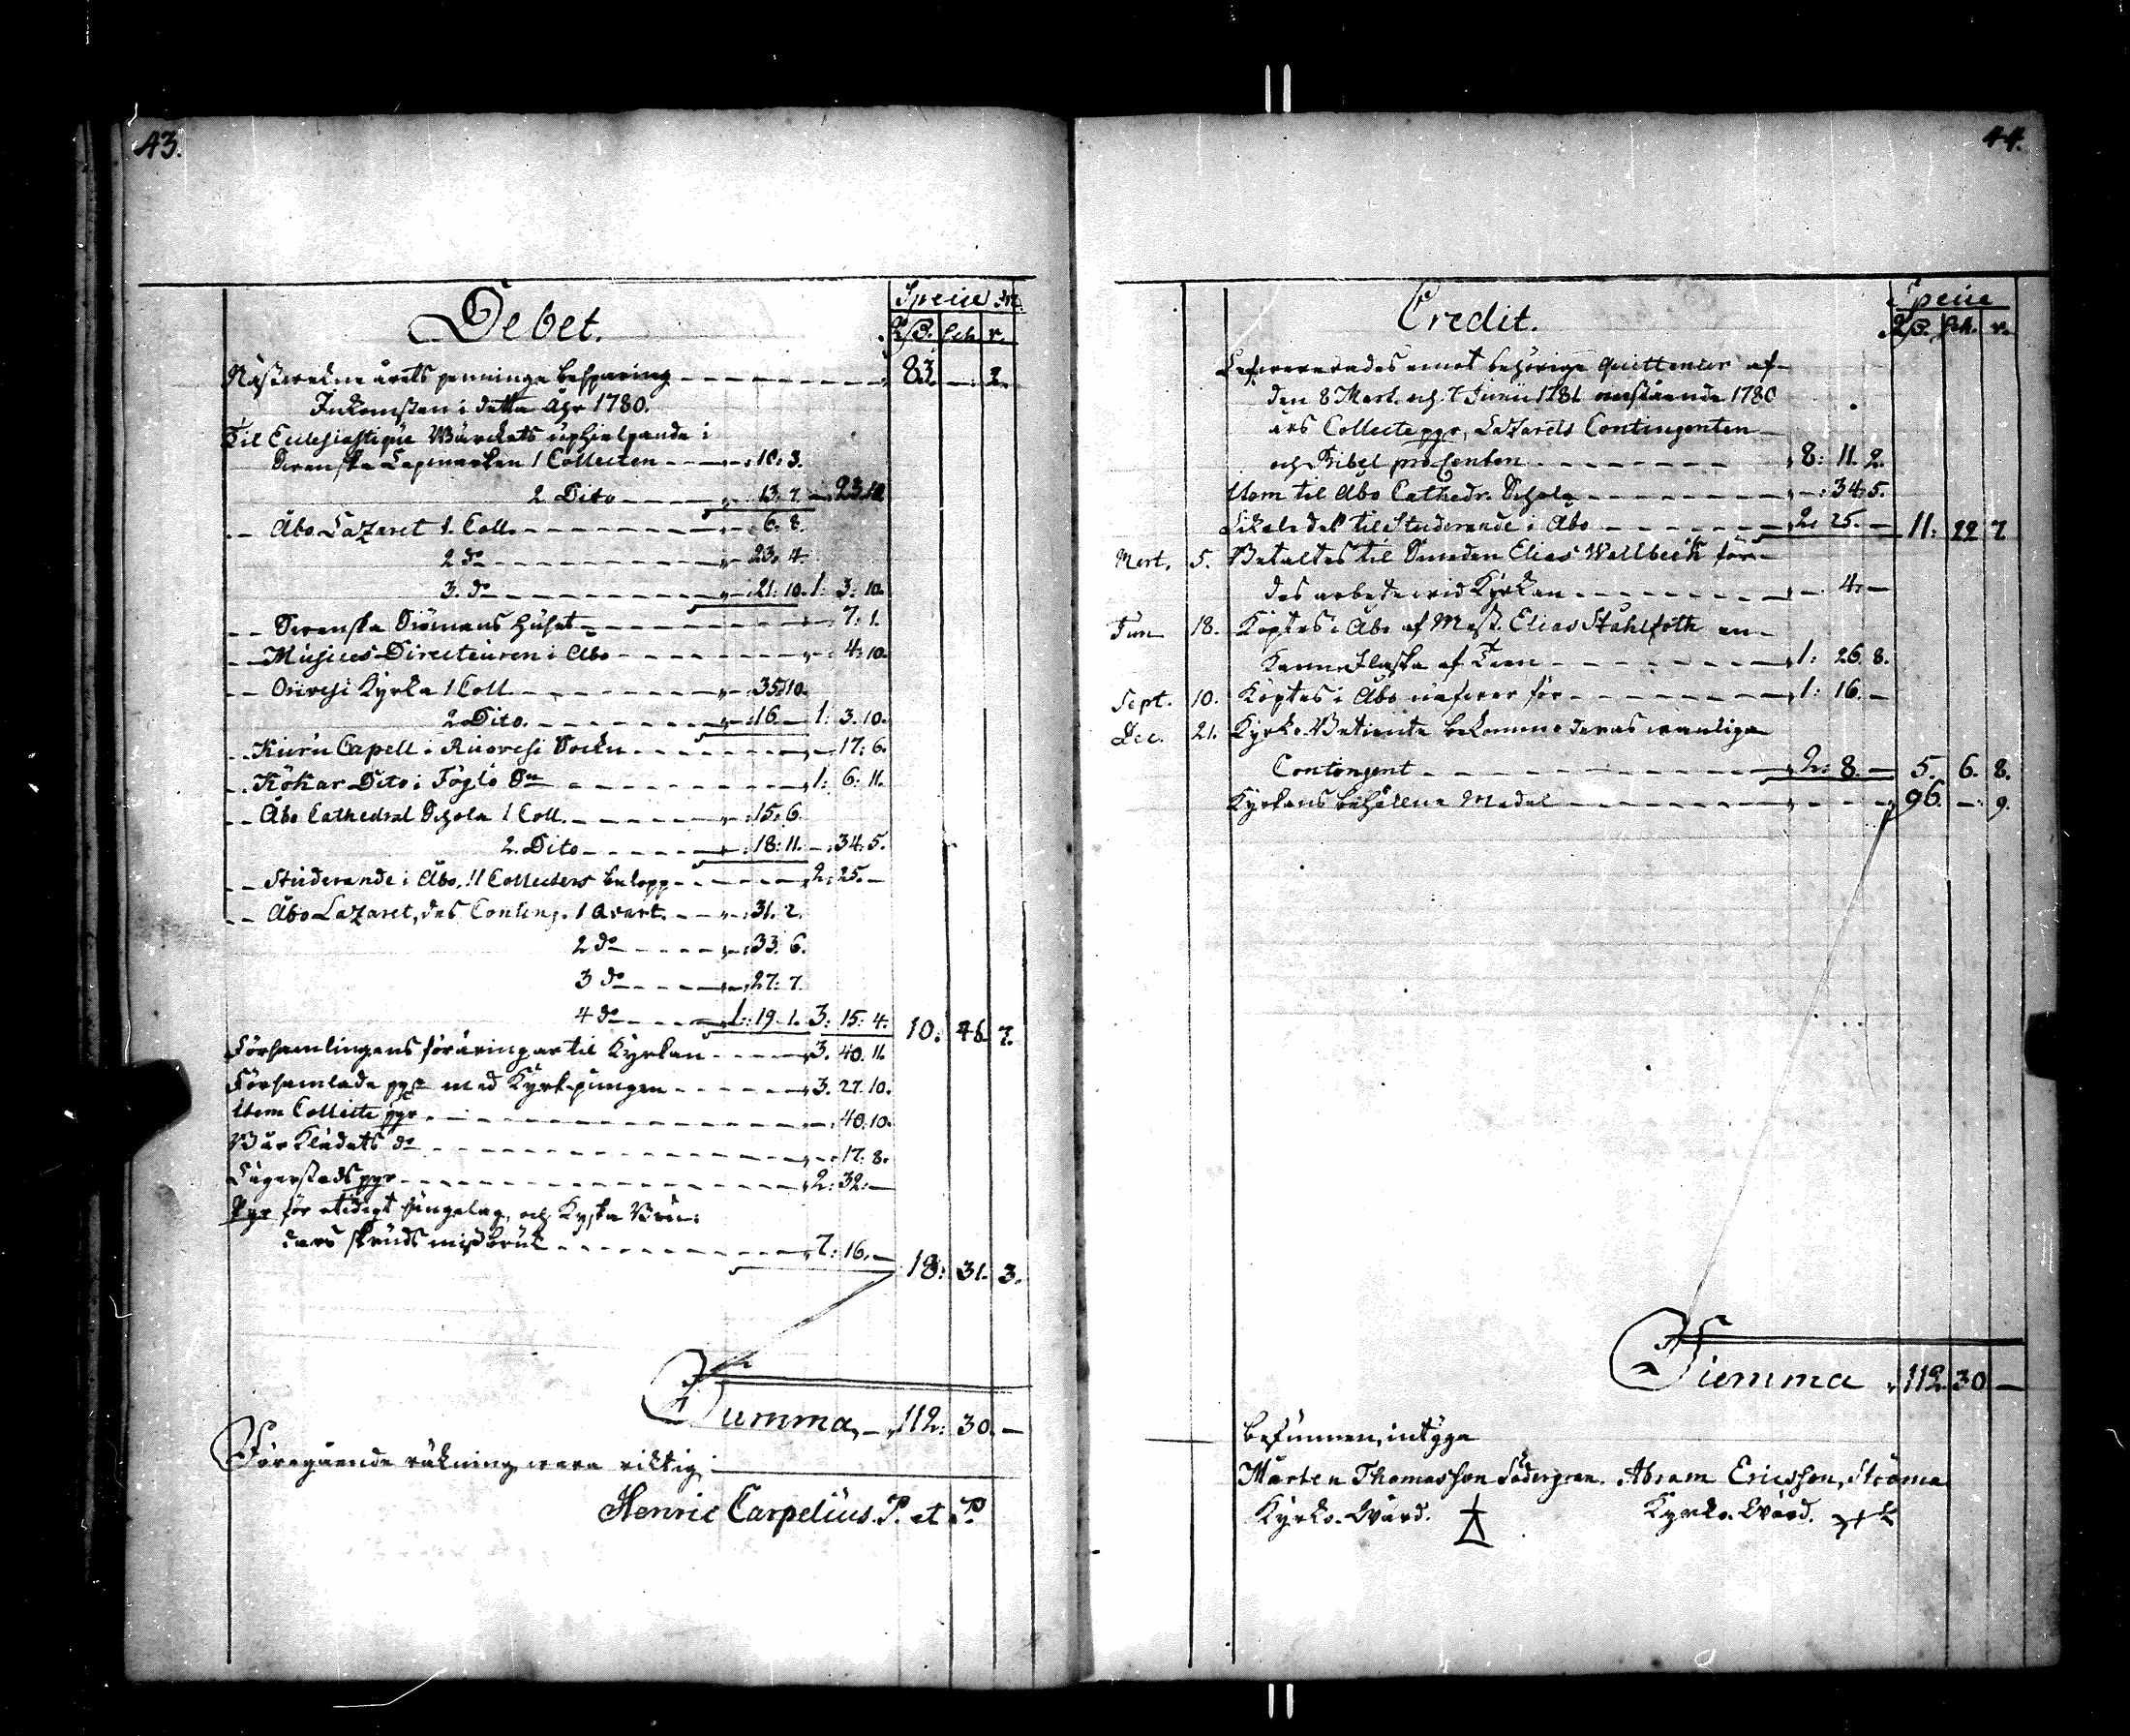 43.
Debet.
Specie Mt.
Rß. sch. r.
Nästwekne årets penninge besparing 83. —. 2.
Inkomsten i detta Åhr 1780.
Til Ecclesiastique Wärckets uphielpande i
Swenska Lapmarken 1 Collecten —: 10: 3.
2 Dito —: 13: 7. —: 23: 10.
— Åbo Lazaret 1. Coll. —: 6: 8.
2 do —: 23: 4.
3. do —: 21: 10. 1: 3: 10.
— Swenska Siömans Huset —: 7: 1.
— Musices Directeuren i Åbo —: 4: 10.
— Orivesi Kyrka 1 Coll. —: 35: 10.
2 Dito. —: 16. — 1: 3. 10.
— Kuru Capell i Ruovesi Sockn —: 17: 6.
— Kökar Dito i Föglö Sn 1: 6: 11.
— Åbo Cathedral Schola 1 Coll. —: 15: 6.
2. Dito —: 18: 11. —: 34: 5.
— Studerande i Åbo, 11 Collecters belopp 2: 25. —
— Åbo Lazaret, des Conting. 1 Qvart. —: 31. 2.
2 do —: 33. 6.
3 do —: 27: 7.
4 do 1: 19. 1. 3: 15: 4. 10: 46. 7.
Församlingens föräringar til Kyrkan 3. 40. 11.
Församlade pgr med Kyrkpungen 3. 27. 10.
Item Collecte pgr —: 40. 10.
Bår Klädets do —: 17: 8.
Lägerstads pgr 2: 32: —
Pgr för otidigt sängelag, och Kyska Bru-
dars skruds missbruk 7: 16. — 18: 31. 3.
Summa, — 112: 30. —
Föregående räkning wara riktig
Henric Carpelius. P. et P.
44.
Credit.
Specie
Rß. sch. r.
Lefwererades emot behörige quittencer af
den 8 Mart. och 7 Junii 1781 omstående 1780
års Collecte pgr, Lazarets Contingenten
och Bibel præsenten 8: 11. 2.
Item til Åbo Cathedr. Schola —: 34: 5.
Likaledes til Studerande i Åbo 2: 25. — 11: 22 7
Mart. 5. Betaltes til Smeden Elias Wallbeck för
des arbete wid Kyrkan —. 4. —
Jun 18. Köptes i Åbo af Mäst. Elias Stahlfoth en
Kanne Flaska af Tenn 1: 26. 8.
Sept. 10. Köptes i Åbo för 1: 16. —
Dec. 21. Kyrko Betiente bekommo deras wanliga
Contingent 2: 8. — 5. 6. 8.
Kyrkans behållne Medel 96. —. 9.
Summa 112. 30 —
befunnen, intyga
Mårten Thomasson Södergran. Abram Ericsson, Ströma
Kyrko-Wärd. Kyrko. Wärd.